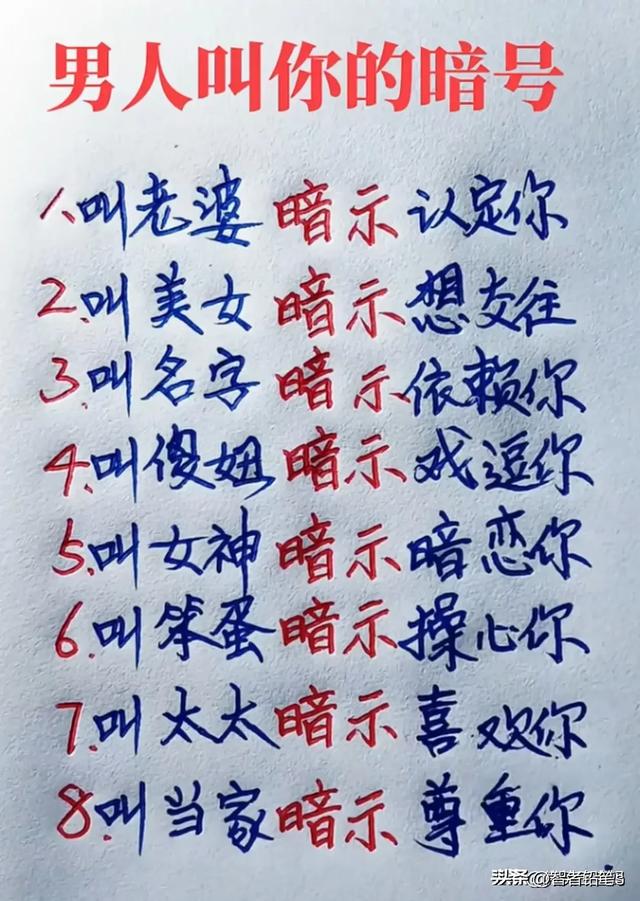 男人叫你的暗号
1、叫老婆 暗示 认定你
2、叫美女 暗示 想交往
3、叫名字 暗示 依赖你
4、叫傻妞 暗示 戏逗你
5、叫女神 暗示 暗恋你
6、叫笨蛋 暗示 操心你
7、叫太太 暗示 喜欢你
8、叫当家 暗示 尊重你
头条@智者铅笔